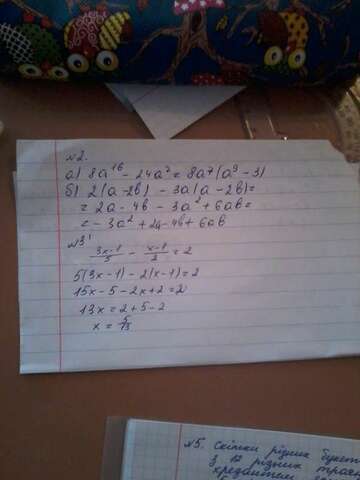 №2.
а) 8a¹⁶ - 24a⁷ = 8a⁷(a⁹ - 3)
б) 2(a - 2b) - 3a(a - 2b) =
= 2a - 4b - 3a² + 6ab =
= - 3a² + 2a - 4b + 6ab
№3
3x-1/5 - x-1/2 = 2
5(3x-1) - 2(x-1) = 2
15x - 5 - 2x + 2 = 2
13x = 2 + 5 - 2
x = 5/13
№5. Скільки різних букет
з 12 різних троян